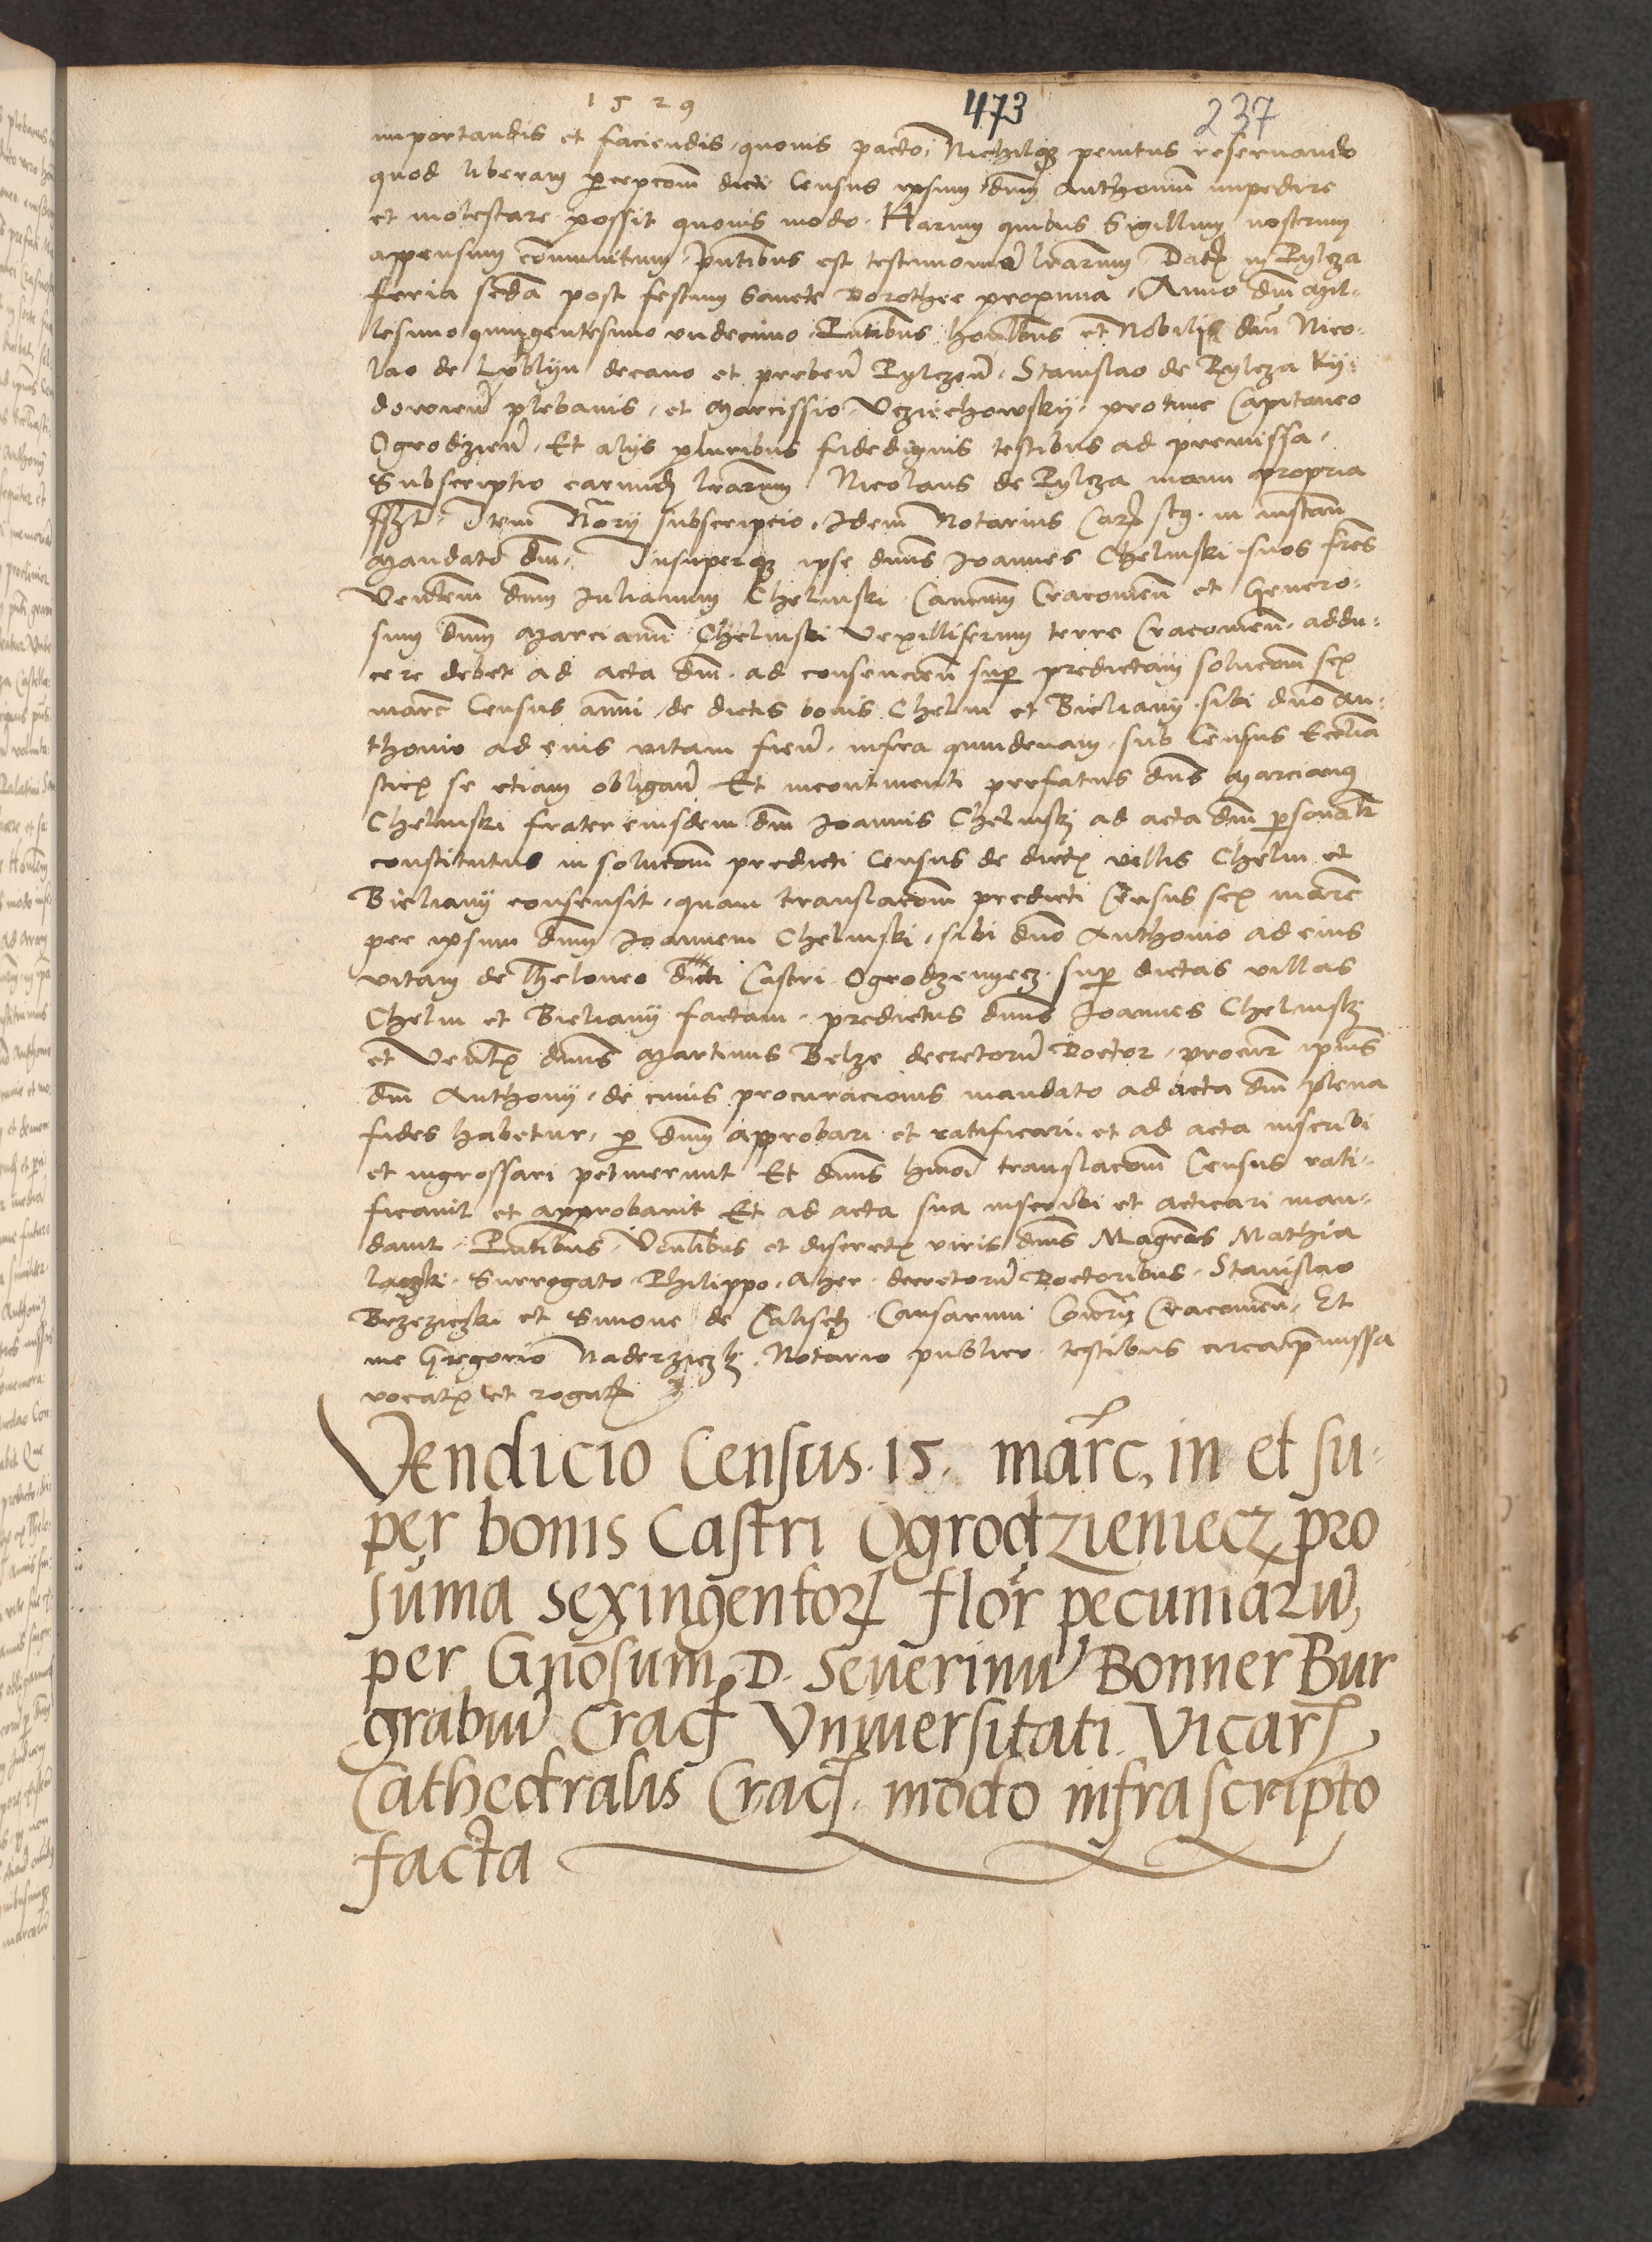 1529 473 237
importandis et faciendis, quovis pacto, Nichilqz penitus reservando
quod liberam percepcom dicti Census ipsum dnm Anthonium impedire
et molestare possit quovis modo. Harum quibus Sigillum nostrum
appensum communitum, pntibus est testimonio lrarum. Dat in Pylcza
feria scda post festum Sancte Dorothee proxima, Anno dni Mil-
lesimo quingentesimo undecimo. Pntibus honlibus et Nobilibus dnis Nico-
lao de Lublyn decano et preben Pylczen, Stanislao de Pylcza Ky-
dowien plebanis, et Marcissio Uziechowsky, protunc Capitaneo
Ogrodzien. Et alijs pluribus fidedignis testibus ad premissa.
Subscriptio earund lrarum Nicolaus de Pylcza manu propria
Item Nary subscripcio. Idem Notarius
mandato dni. Insuperqz ipse dnus Joannes Chelmski suos fres
Venlem dnm Julianum Chelmski Canicum Cracovien et Genero-
sum dnm Marcianum Chelmski Vexilliferum terre Cracovien. addu-
cere debet ad acta dni. ad consencien super predictam solucom sex
marc Census annui, de dictis bonis Chelm et Bieliany sibi dno An-
thonio ad eius vitam fien, infra quindenam, sub Census Eccliā
stic se etiam obligan Et incontinenti prefatus dns Marcianus
Chelmski frater eiusdem dni Joannis Chelmski ad acta dni personalr
constitutus in solucom predicti Census de dictis villis Chelm et
Bieliany consensit, quam translacom predicti Census sex marc
per ipsum dnm Joannem Chelmski, sibi dno Anthonio ad eius
vitam de Theloneo dicti Castri Ogrodzenyecz super dictas villas
Chelm et Bieliany factam. predictus dnus Joannes Chelmski
et Venlis dnus Martinus Belze decretorum Doctor, procur ipius
dni Anthony, de cuius procuracionis mandato ad acta dni plena
fides habetur, per dnm approbari et ratificari et ad acta inscribi
et ingrossari petiverunt Et dnus hmoi translacom Census rati-
ficavit et approbavit Et ad acta sua inscribi et acticari man-
davit. Pntibus, Venlibus et discretis viris dnis Magris Mathia
Surrogato Philippo. Aher. decretorum Doctoribus. Stanislao
Brzeziczki et Simone de Calisch Causarum Cracovien. Et
me Gregorio Naderziczki Notario publico testibus circa premissa
vocatis et rogatis
Vendicio Census. 15. marc, in et su-
per bonis Castri Ogrodzieniecz pro
suma sexingentor flor pecuniarum,
per Gnosum D. Severinum Bonner Bur
grabium Crac Universitati Vicar
Cathedralis Crac. modo infrascripto
facta